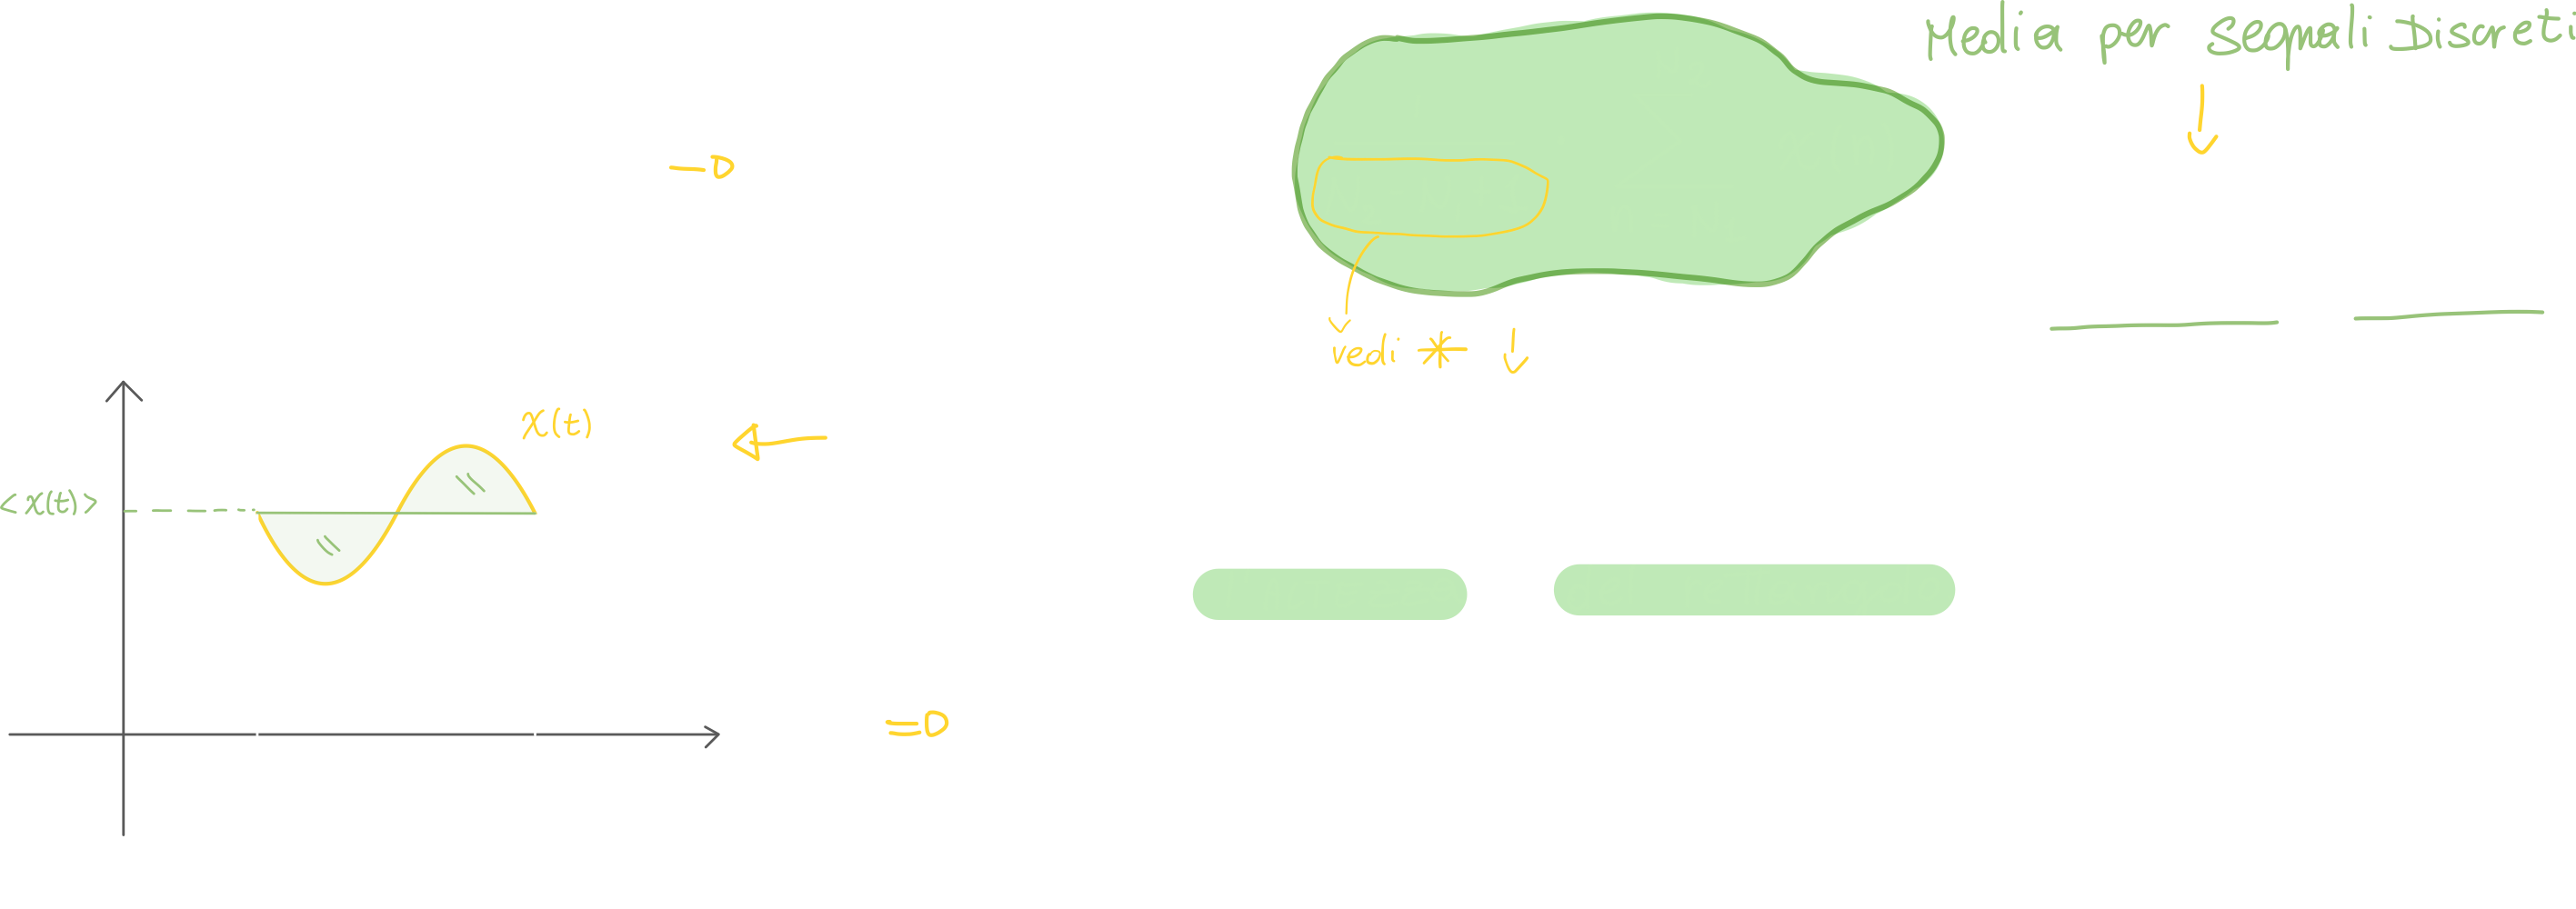 Media per Segnali Discreti
vedi *
x(t)
<x(t)>